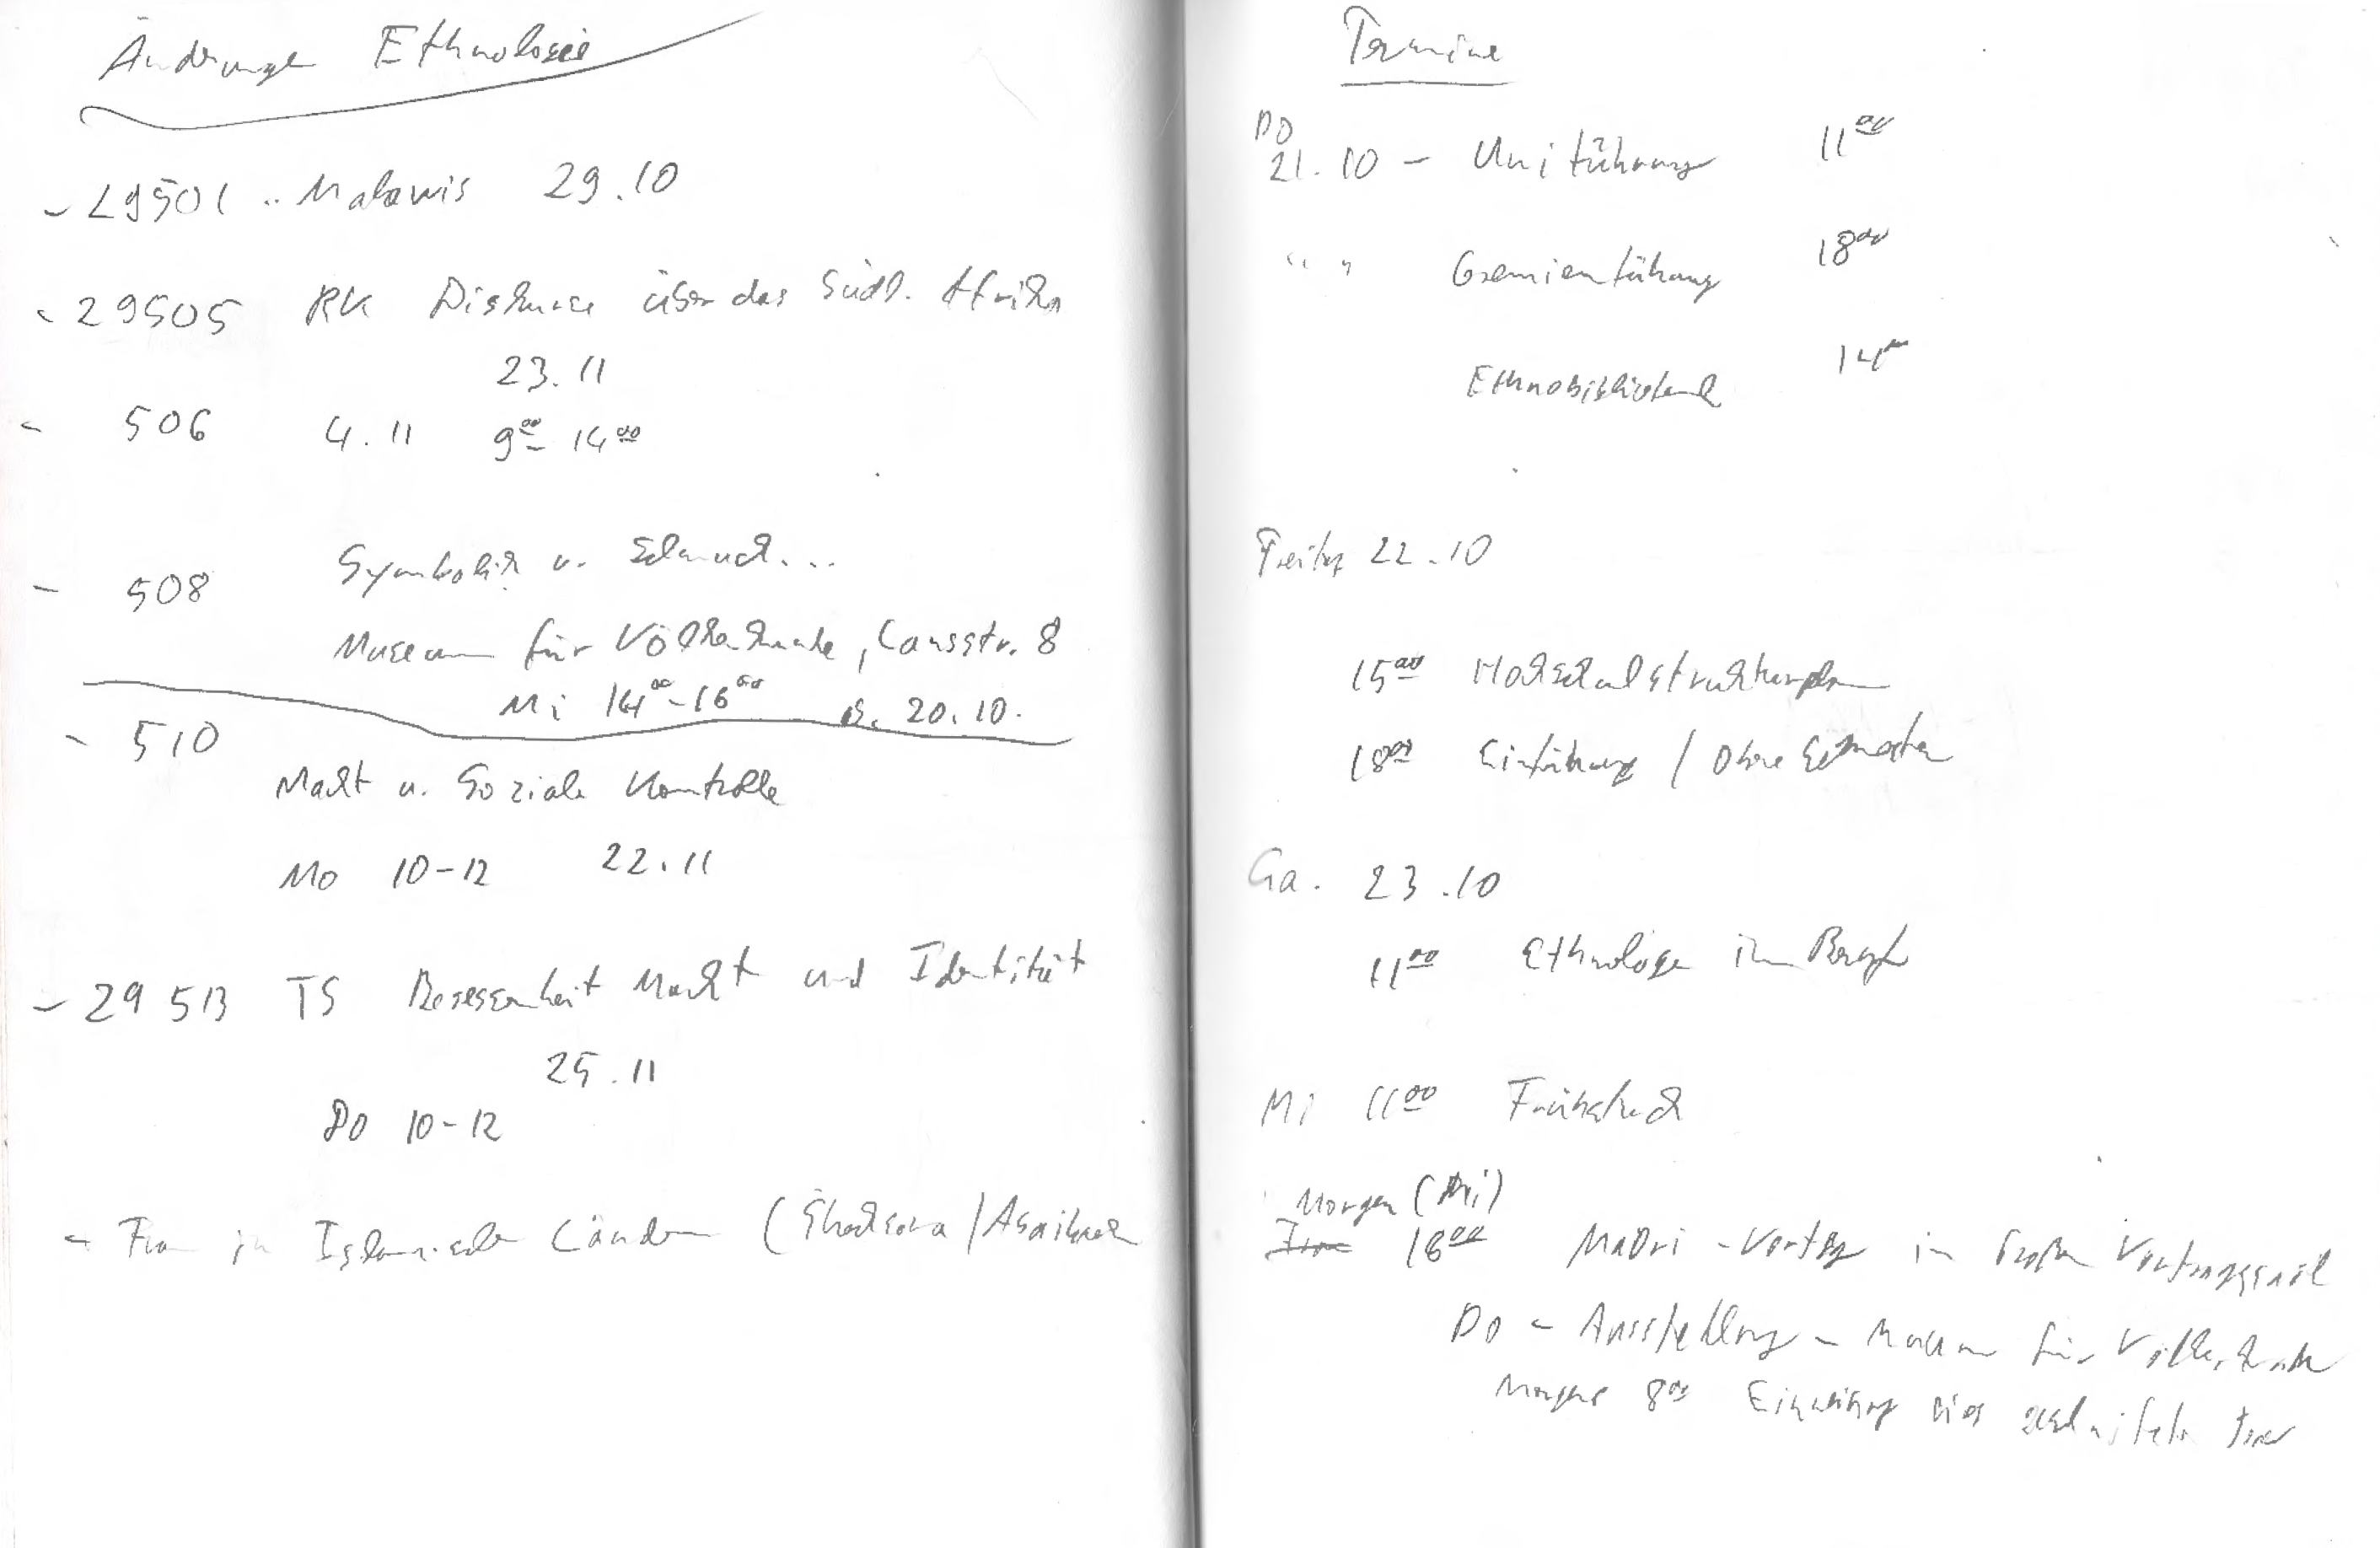 Änderungen Ethnologie
- 29501 .. Malawis 29.10
- 29505 RK Diskurse über das Südl. Afrika
23.11
- 506 4.11 9⁰⁰ 14⁰⁰
- 508 Symbolik u. Schmuck...
Museum für Völkerkunde, Lansstr. 8
Mi 14⁰⁰-16⁰⁰ 20.10.
- 510
Macht u. Soziale Kontrolle
Mo 10-12 22.11
- 29 513 TS Besessenheit Macht und Identität
25.11
Do 10-12
- Frau in Islamischen Ländern (
Termine
DO
21.10 - Uniführung 11⁰⁰
" " Gremienführung 18⁰⁰
Ethnobibliothek 14⁰⁰
Freitag 22.10
15⁰⁰ Hochschulstrukturplan
18⁰⁰ Einführung / Ohne
Sa. 23.10
11⁰⁰ Ethnologe im Beruf
Mi 11⁰⁰ Frühstück
Morgen (Mi)
18⁰⁰ Maori - Vortrag im Großen Vortragssaal
DO - Ausstellung - Museum für Völkerkunde
Morgens 8⁰⁰ Einweihung des geschnitzten Tor